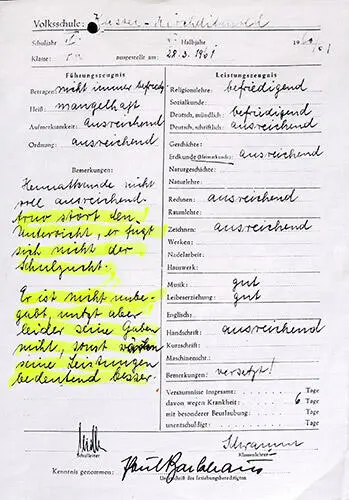 Volksschule:
Schuljahr II. Halbjahr 1960/61
Klasse: ausgestellt am: 28.3.1961
Führungszeugnis
Betragen: nicht immer befriedig
Fleiß: mangelhaft
Aufmerksamkeit: ausreichend
Ordnung: ausreichend
Bemerkungen:
Heimatkunde nicht
voll ausreichend.
Arno stört den
Unterricht, er fügt
sich nicht der
Schulzucht.
Er ist nicht unbe-
gabt, nutzt aber
leider seine Gaben
nicht, sonst wären
seine Leistungen
bedeutend besser.
Leistungszeugnis
Religionslehre: befriedigend
Sozialkunde:
Deutsch, mündlich: befriedigend
Deutsch, schriftlich: ausreichend
Geschichte:
Erdkunde (Heimatkunde): ausreichend
Naturgeschichte:
Naturlehre:
Rechnen: ausreichend
Raumlehre:
Zeichnen: ausreichend
Werken:
Nadelarbeit:
Hauswerk:
Musik: gut
Leibeserziehung: gut
Englisch:
Handschrift: ausreichend
Kurzschrift:
Maschinenschr.:
Bemerkungen: versetzt!
Versäumnisse insgesamt: Tage
davon wegen Krankheit: 6 Tage
mit besonderer Beurlaubung: Tage
unentschuldigt: Tage
Schulleiter
Schramm
Klassenlehrer
Kenntnis genommen:
Unterschrift des Erziehungsberechtigten